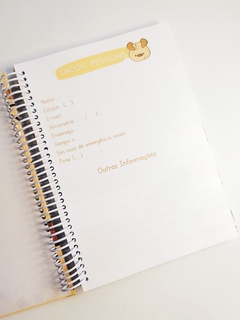 DADOS PESSOAIS
Nome:
Celular: (  )
E-mail:
Aniversário:   /   /
Endereço:
Sangue e
Em caso de emergência, avisar:
Fone: (  )
Outras Informações